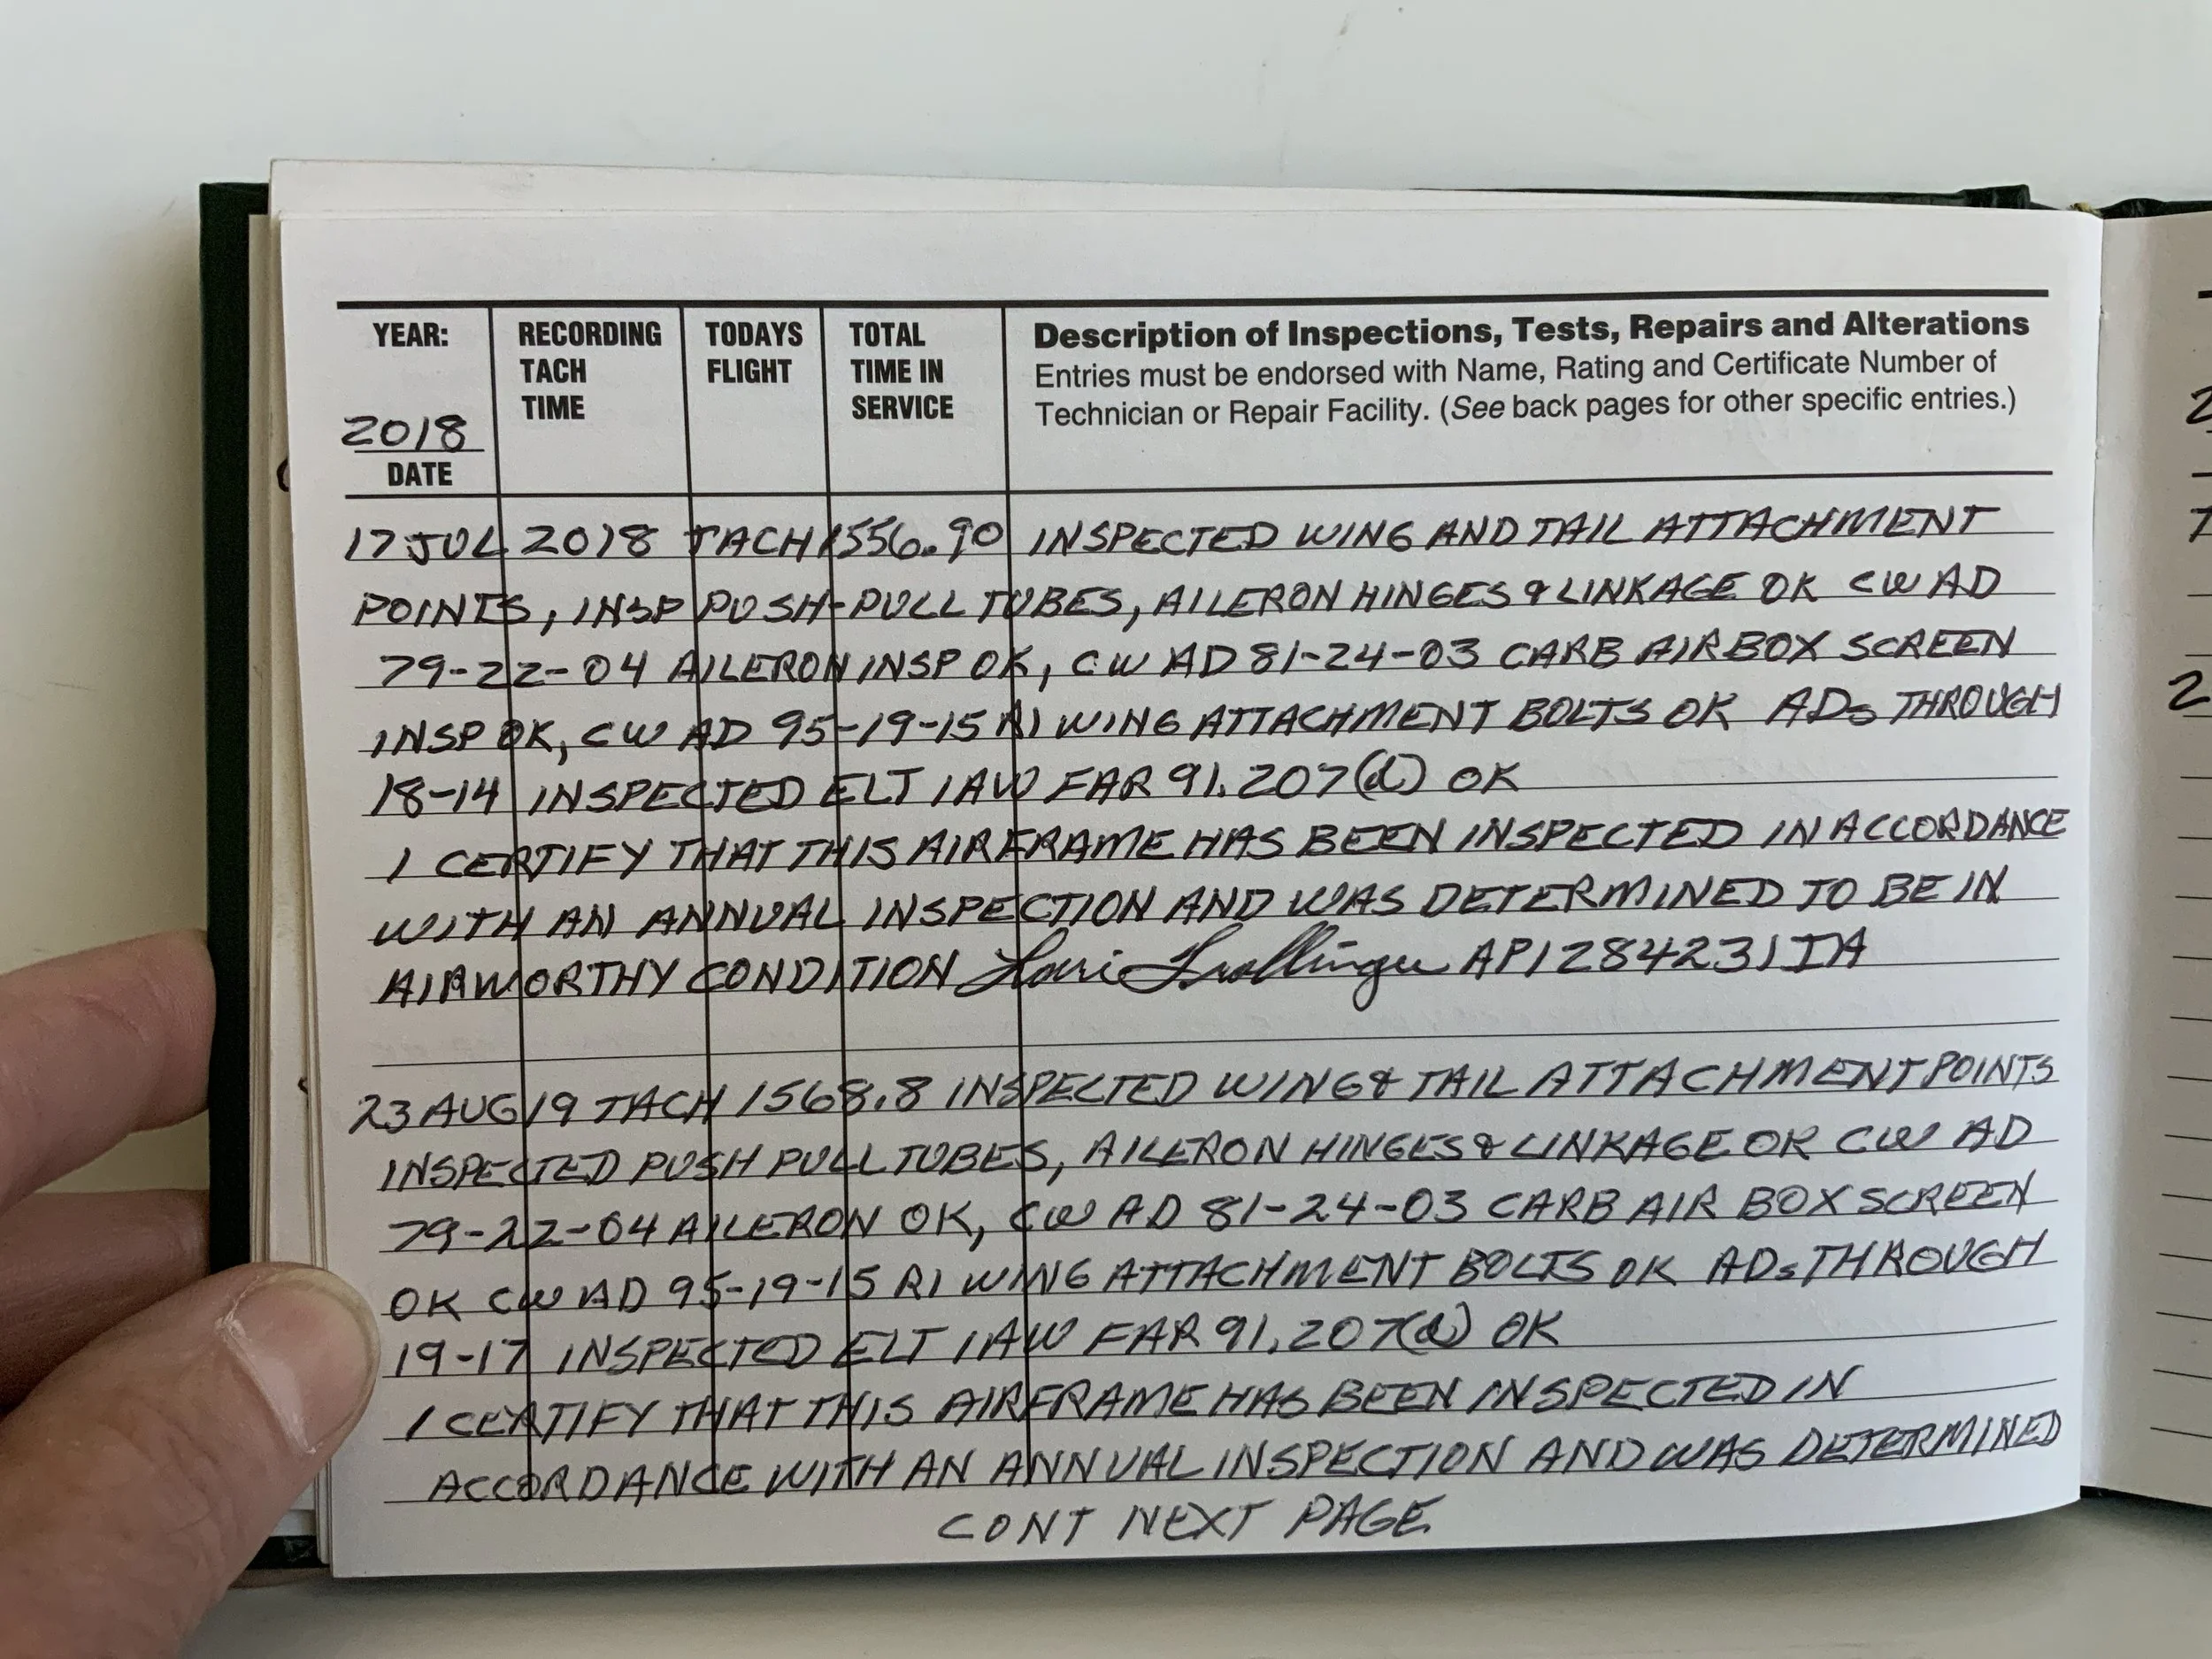 YEAR: RECORDING TACH TIME TODAYS FLIGHT TOTAL TIME IN SERVICE
2018
DATE
Description of Inspections, Tests, Repairs and Alterations
Entries must be endorsed with Name, Rating and Certificate Number of
Technician or Repair Facility. (See back pages for other specific entries.)
17 JUL 2018 TACH 1556.90 INSPECTED WING AND TAIL ATTACHMENT
POINTS, INSP PUSH-PULL TUBES, AILERON HINGES & LINKAGE OK CW AD
79-22-04 AILERON INSP OK, CW AD 81-24-03 CARB AIR BOX SCREEN
INSP OK, CW AD 95-19-15 R1 WING ATTACHMENT BOLTS OK ADs THROUGH
18-14 INSPECTED ELT IAW FAR 91.207(d) OK
I CERTIFY THAT THIS AIRFRAME HAS BEEN INSPECTED IN ACCORDANCE
WITH AN ANNUAL INSPECTION AND WAS DETERMINED TO BE IN
AIRWORTHY CONDITION AP1284231IA
23 AUG 19 TACH 1568.8 INSPECTED WING & TAIL ATTACHMENT POINTS
INSPECTED PUSH PULL TUBES, AILERON HINGES & LINKAGE OK CW AD
79-22-04 AILERON OK, CW AD 81-24-03 CARB AIR BOX SCREEN
OK CW AD 95-19-15 R1 WING ATTACHMENT BOLTS OK ADs THROUGH
19-17 INSPECTED ELT IAW FAR 91.207(d) OK
I CERTIFY THAT THIS AIRFRAME HAS BEEN INSPECTED IN
ACCORDANCE WITH AN ANNUAL INSPECTION AND WAS DETERMINED
CONT NEXT PAGE